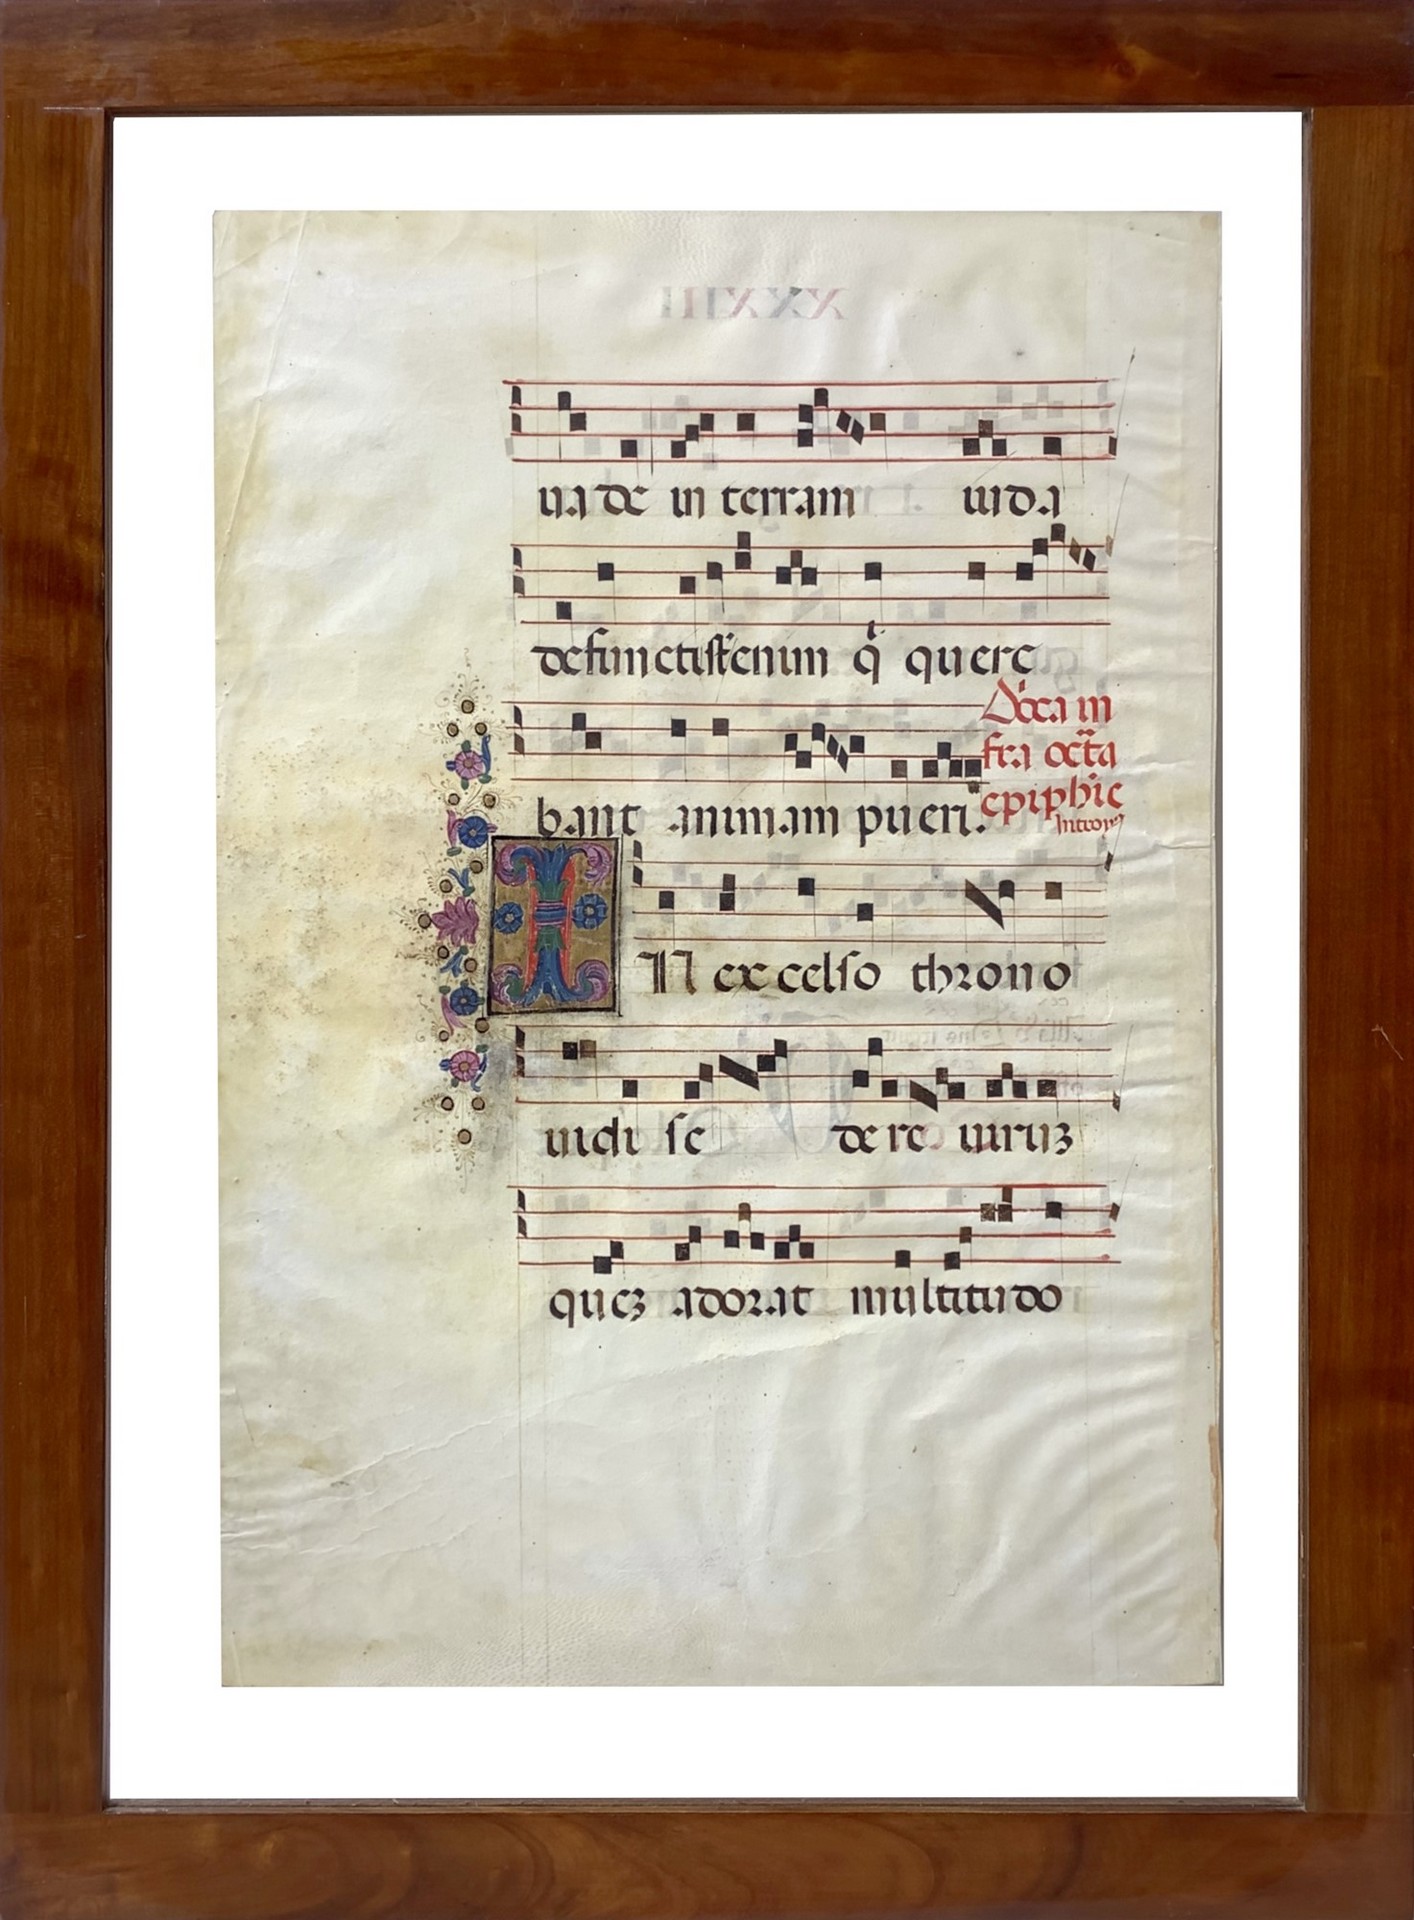 ua de in terram iuda
defuncti st̄ enim q̇ quere
bant animam pueri.
Dn̄ca in
fra octā
epiphīe
Introyꝰ
IN excelso throno
uidi se dere uiruȝ
queȝ adorat multitudo